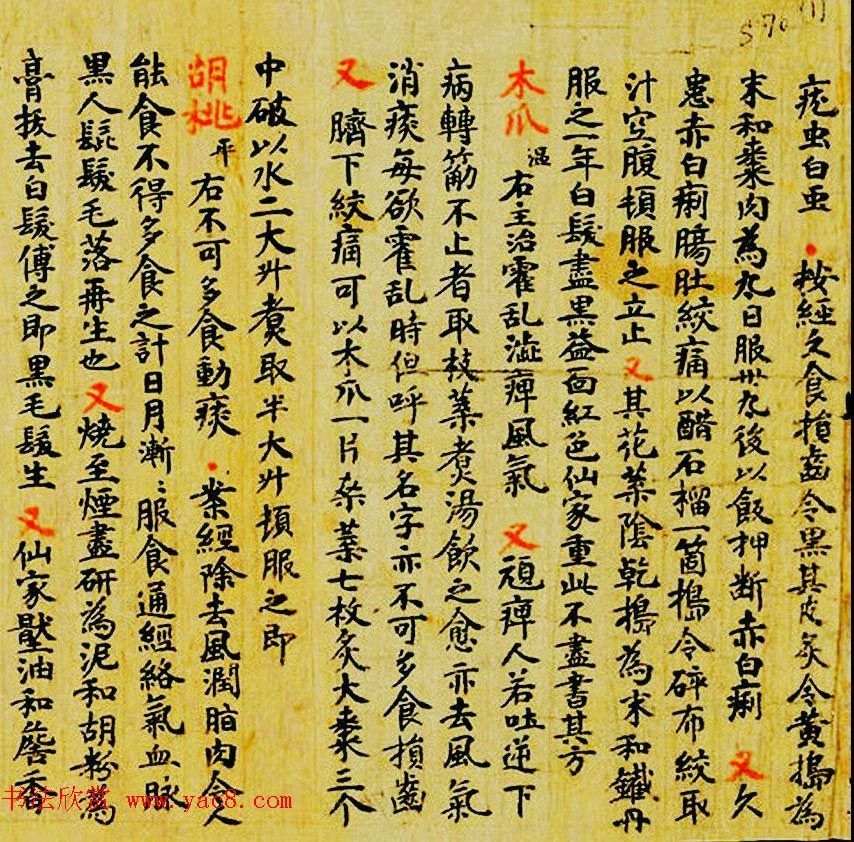 S76 (1)
疣虫白虫 ・按經久食損齒令黒其皮炙令黄搗為
末和棗肉為丸日服卅丸後以飯押断赤白痢 又久
患赤白痢腸肚絞痛以醋石榴一箇搗令碎布絞取
汁空腹頓服之立止 又其花葉陰乾搗為末和鐵丹
服之一年白髮盡黒益面紅色仙家重此不盡書其方
木爪 温 右主治霍乱澁痺風氣 又 頑痺人若吐逆下
病轉筋不止者取枝葉煮湯飲之愈亦去風氣
消痰每欲霍乱時但呼其名字亦不可多食損齒
又 臍下絞痛可以木爪一片桒葉七枚炙大棗三个
中破以水二大升煮取半大升頓服之即
胡桃 平 右不可多食動痰 ・案經除去風潤脂肉令人
能食不得多食之計日月漸〻服食通經絡氣血脉
黒人髭鬚毛落再生也 又 燒至煙盡研為泥和胡粉為
膏拔去白髮傅之即黒毛髮生 又 仙家壓油和詹香
书法欣赏 www.yac8.com